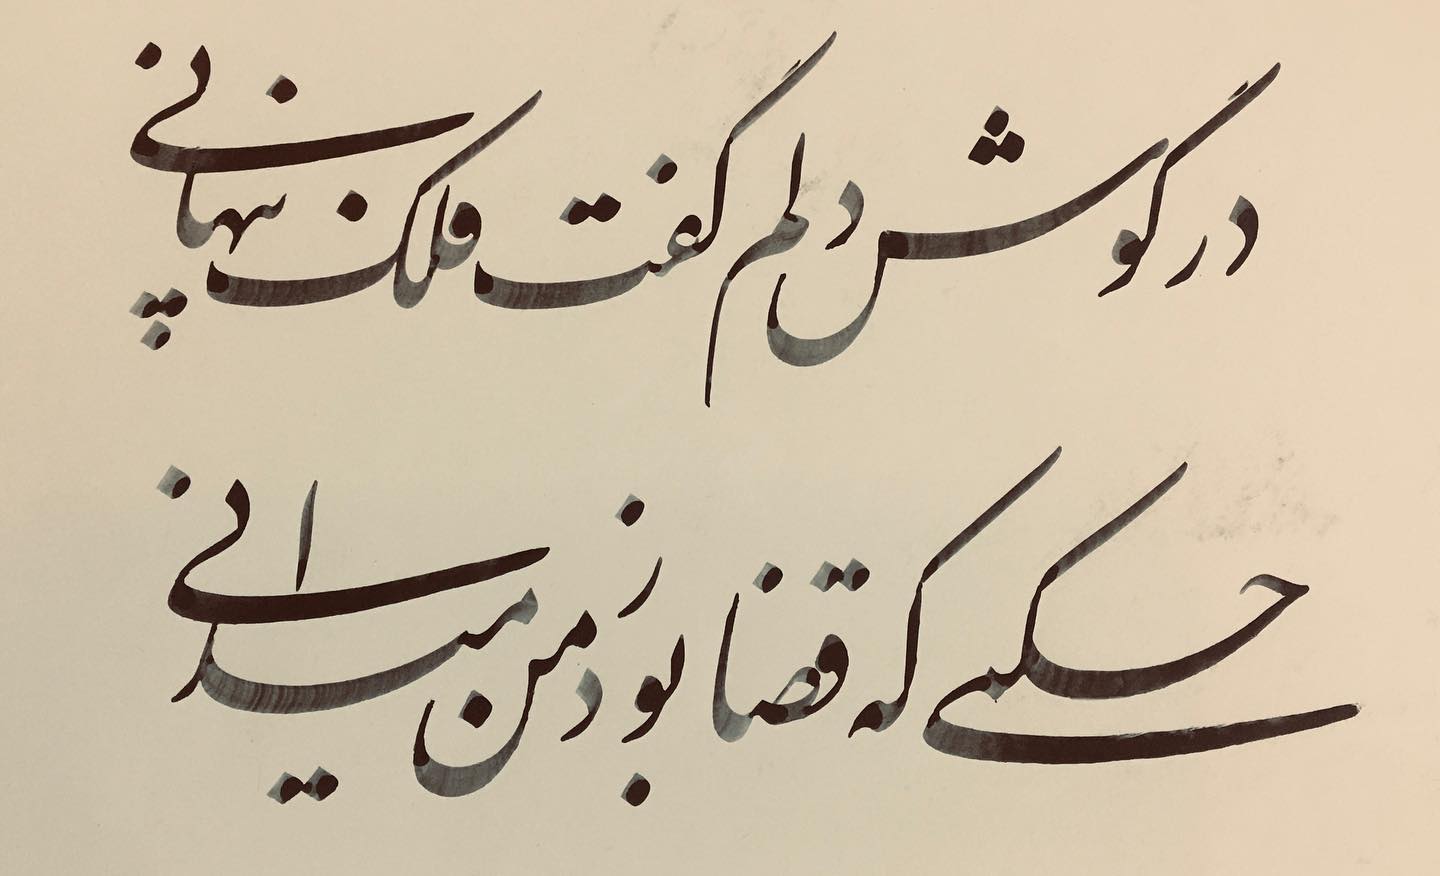 در گوش دلم گفت فلک پنهانی
حکمی که قضا بود ز من میدانی